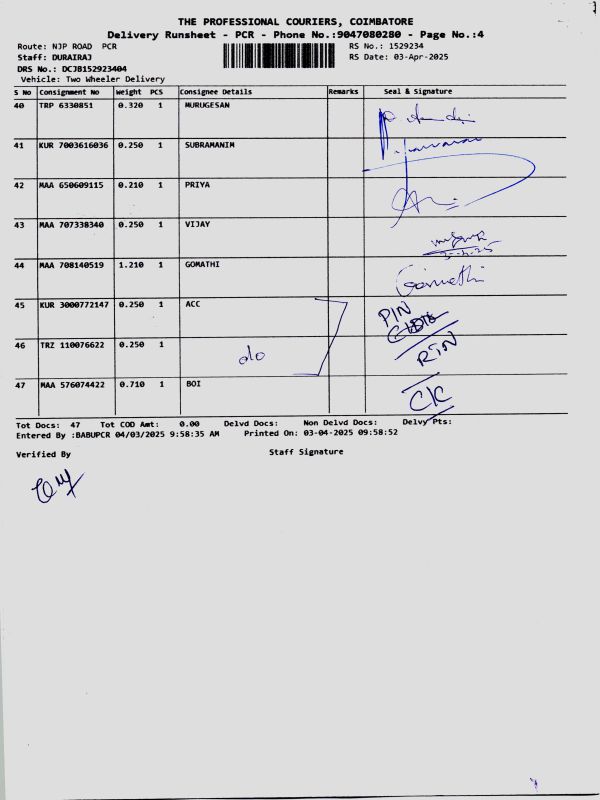 THE PROFESSIONAL COURIERS, COIMBATORE
Delivery Runsheet - PCR - Phone No.:9047080280 - Page No.:4
Route: NJP ROAD PCR RS No.: 1529234
Staff: DURAIRAJ RS Date: 03-Apr-2025
DRS No.: DCJB152923404
Vehicle: Two Wheeler Delivery
S No Consignment No Weight PCS Consignee Details Remarks Seal & Signature
40 TRP 6330851 0.320 1 MURUGESAN
41 KUR 7003616036 0.250 1 SUBRAMANIM
42 MAA 650609115 0.210 1 PRIYA
43 MAA 707338340 0.250 1 VIJAY
44 MAA 708140519 1.210 1 GOMATHI Gomathi
45 KUR 3000772147 0.250 1 ACC PIN
46 TRZ 110076622 0.250 1 do RTN
47 MAA 576074422 0.710 1 BOI CK
Tot Docs: 47 Tot COD Amt: 0.00 Delvd Docs: Non Delvd Docs: Delvy Pts:
Entered By :BABUPCR 04/03/2025 9:58:35 AM Printed On: 03-04-2025 09:58:52
Verified By Staff Signature